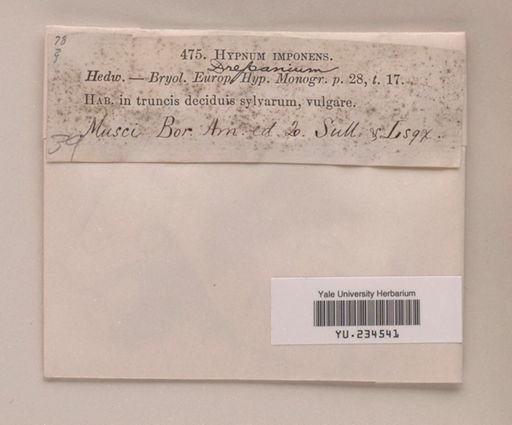 475. HYPNUM IMPONENS.
Drepanium
Hedw. — Bryol. Europ. Hyp. Monogr. p. 28, t. 17.
HAB. in truncis deciduis sylvarum, vulgare.
Musci Bor. Am. ed. 2. Sull. & Lsqx.
39
Yale University Herbarium
YU.234541